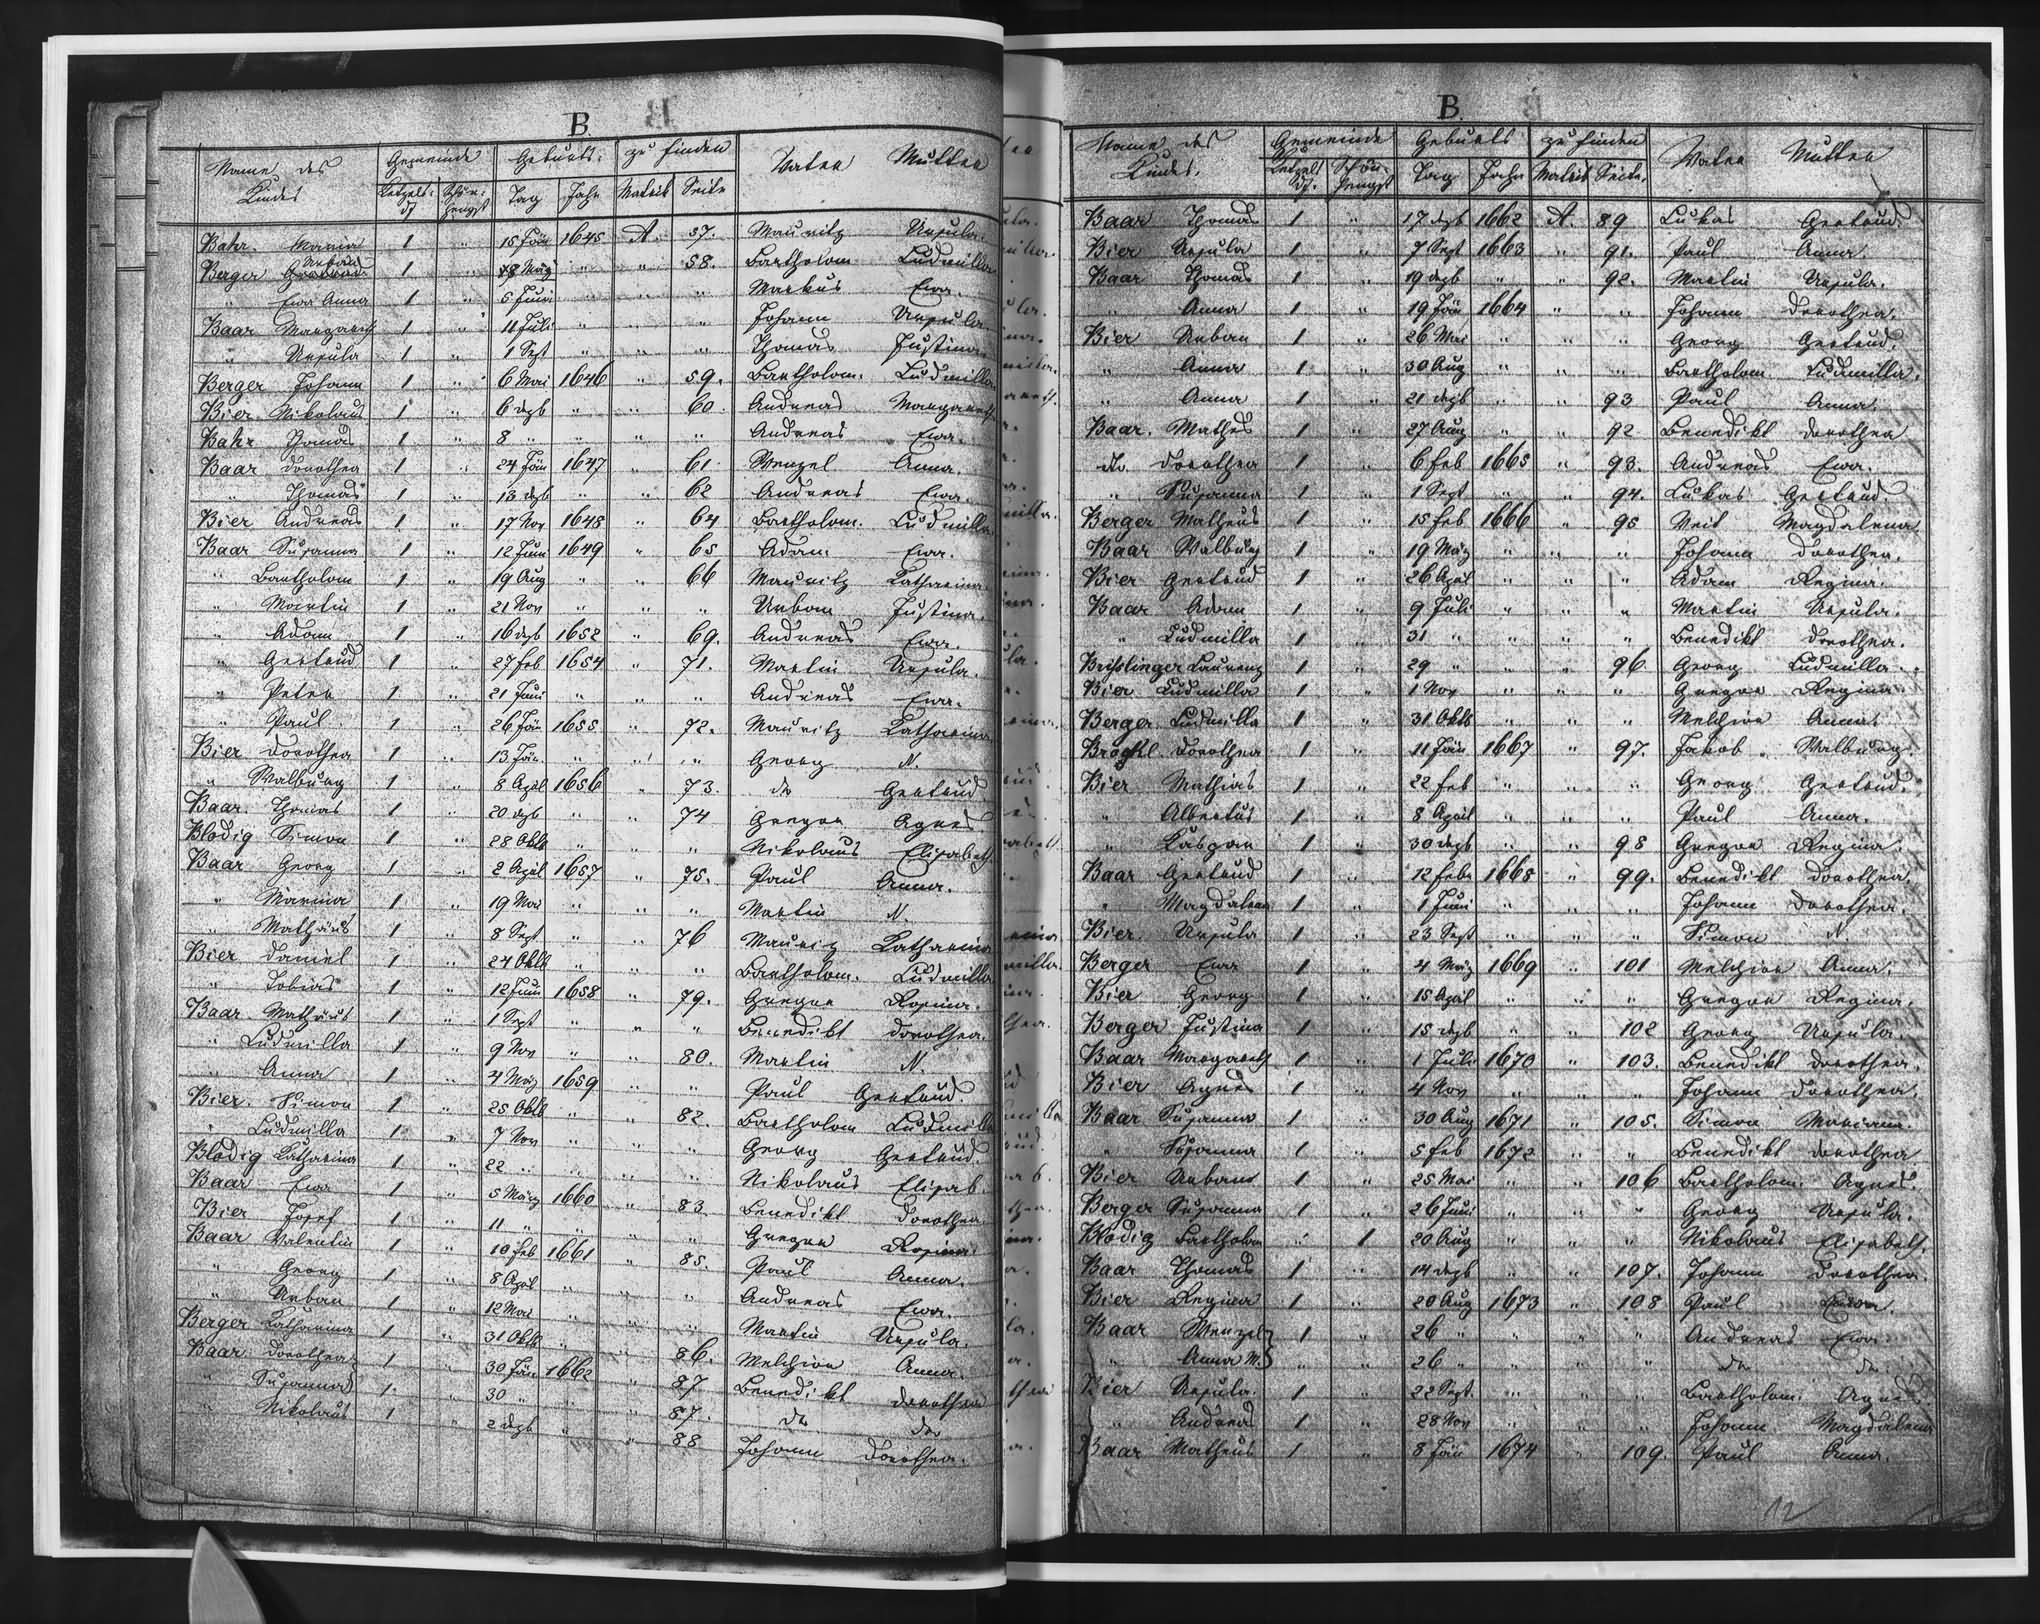 B.
Name des Kindes Gemeinde Geburts. zu finden Vater Mutter
Tag Jahr Matrik Seite
Bahr. Marina 1 " 15 Jän 1645 A. 57. Mauritz Ursula.
Berger Urban 1 " März " " 58. Bartholom Ludmilla
" Ewa Anna 1 " 5 Juni " " " Markus Ewa.
Baar Margareth 1 " 11 Juli " " " Johann Ursula
" Ursula 1 " 1 Sept " " " Thomas Justina
Berger Johann 1 " 6 Mai 1646 " 59. Bartholom. Ludmilla
Bier Nikolaus 1 " 6 dezb " " 60. Andreas Margareth
Bahr Thomas 1 " 8 " " " " Andreas Ewa.
Baar Dorothea 1 " 24 Jän 1647 " 61. Wenzel Anna.
" Thomas 1 " 13 dezb " " 62 Andreas Ewa.
Bier Andreas 1 " 17 Nov 1648 " 64 Bartholom. Ludmilla
Baar Susanna 1 " 12 Juni 1649 " 65 Adam Ewa.
" Bartholom 1 " 19 Aug " " 66 Mauritz Katharina.
" Martin 1 " 21 Nov " " " Urban Justina.
" Adam 1 " 16 dezb 1652 " 69. Andreas Ewa.
" Gertrud 1 " 27 feb 1654 " 71. Martin Ursula.
" Peter 1 " 21 Juni " " " Andreas Ewa.
" Paul 1 " 26 Jän 1655 " 72. Mauritz Katharina
Bier Dorothea 1 " 13 Jän. " " " Georg N.
" Walburg 1 " 8 Aprl 1656 " 73. do Gertrud
Baar Thomas 1 " 20 dezb " " 74 Gregor Agnes
Blodig Simon 1 " 28 Oktb " " " Nikolaus Elisabeth
Baar Georg 1 " 2 Aprl 1657 " 75. Paul Anna.
" Marina 1 " 19 Mai " " " Martin N.
" Mathäus 1 " 8 Sept " " 76 Mauritz Katharina
Bier Daniel 1 " 24 Oktb " " " Bartholom. Ludmilla
" Tobias 1 " 12 Juni 1658 " 79. Gregor Rosina.
Baar Mathäus 1 " 1 Sept " " " Benedikt Dorothea.
" Ludmilla 1 " 9 Nov " " 80. Martin N.
" Anna 1 " 4 März 1659 " " Paul Gertrud.
Bier. Simon 1 " 25 Oktb " " 82. Bartholom Ludmilla
" Ludmilla 1 " 7 Nov " " " Georg Gertrud.
Blodig Katharina 1 " 22 " " " " Nikolaus Elisab.
Baar Ewa 1 " 5 März 1660 " 83. Benedikt Dorothea.
Bier Josef 1 " 11 " " " " Gregor Rosina.
Baar Valentin 1 " 10 feb 1661 " 85. Paul Anna.
" Georg 1 " 8 Aprl " " " Andreas Ewa.
" Urban 1 " 12 Mai " " " Martin Ursula.
Berger Katharina 1 " 31 Oktb " " 86. Melchior Anna.
Baar Dorothea 1 " 30 Jän 1662 " 87 Benedikt Dorothea
" Susanna 1 " 30 " " " 87. do do
" Nikolaus 1 " 2 dezb " " 88 Johann Dorothea.
B.
Name des Kindes. Gemeinde Geburts zu finden Vater Mutter
Tag Jahr Matrik Seite.
Baar Thomas 1 " 17 dezb 1662 A. 89 Lukas Gertrud.
Bier Ursula 1 " 7 Sept 1663 " 91. Paul Anna.
Baar Thomas 1 " 19 dezb " " 92. Martin Ursula.
" Anna 1 " 19 Jän 1664 " " Johann Dorothea.
Bier Urban 1 " 26 Mai " " " Georg Gertrud.
" Anna 1 " 30 Aug " " " Bartholom Ludmilla.
" Anna 1 " 21 dezb " " 93 Paul Anna.
Baar. Mathes 1 " 27 Aug " " 92 Benedikt Dorothea
do Dorothea 1 " 6 feb 1665 " 93. Andreas Ewa.
" Susanna 1 " 1 Sept " " 94. Lukas Gertrud.
Berger Matheus 1 " 15 feb 1666 " 95 Veit Magdalena
Baar Walburg 1 " 19 März " " " Johann Dorothea.
Bier Gertrud 1 " 26 Aprl " " " Adam Regina.
Baar Adam 1 " 9 Juli " " " Martin Ursula.
" Ludmilla 1 " 31 " " " " Benedikt Dorothea.
Laurenz 1 " 29 " " " 96 Georg Ludmilla.
Bier Ludmilla 1 " 1 Nov " " " Gregor Regina
Berger Ludmilla 1 " 31 Oktb " " " Melchior Anna.
Dorothea 1 " 11 Jän 1667 " 97. Jakob Walburg
Bier Mathias 1 " 22 feb " " " Georg Gertrud.
" Albertus 1 " 8 April " " " Paul Anna.
" Kaspar 1 " 30 dezb " " 98 Gregor Regina.
Baar Gertrud 1 " 12 febr 1668 " 99. Benedikt Dorothea.
" Magdalena 1 " 1 Juni " " " Johann Dorothea.
Bier. Ursula 1 " 23 Sept " " " Simon N.
Berger Ewa 1 " 4 März 1669 " 101 Melchior Anna.
Bier Georg 1 " 15 Aprl " " " Gregor Regina.
Berger Justina 1 " 15 dezb " " 102 Georg Ursula.
Baar Margareth 1 " 1 Juli 1670 " 103. Benedikt Dorothea.
Bier Agnes 1 " 4 Nov " " " Johann Dorothea.
Baar Susanna 1 " 30 Aug 1671 " 105. Simon Mariana.
" Susanna 1 " 5 feb 1672 " " Benedikt Dorothea
Bier Urban 1 " 25 Mai " " 106 Bartholom. Agnes.
Berger Susanna 1 " 26 Juni " " " Georg Ursula.
Blodig Bartholom " 1 20 Aug " " " Nikolaus Elisabeth.
Baar Thomas 1 " 14 dezb " " 107. Johann Dorothea.
Bier Regina 1 " 20 Aug 1673 " 108 Paul
Baar Wenzel 1 " 26 " " " " Andreas Ewa
" Anna M. " " 26 " " " " do do
Bier Ursula. 1 " 22 Sept. " " " Bartholom. Agnes.
" Andreas 1 " 28 Nov " " " Johann Magdalena
Baar Matheus 1 " 8 Jän 1674 " 109. Paul Anna.
12